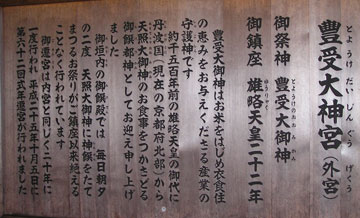 とようけだいじんぐう げくう
豊受大神宮(外宮)
とようけのおおみかみ
御祭神 豊受大御神
ゆうりゃく
御鎮座 雄略天皇二十二年
豊受大御神はお米をはじめ衣食住
の恵みをお与えくださる産業の
守護神です
約千五百年前の雄略天皇の御代に
丹波国(現在の京都府北部)から
天照大御神のお食事をつかさどる
御饌都神としてお迎え申し上げ
ました
御垣内の御饌殿では 毎日朝夕
の二度 天照大御神に神饌をたて
まつるお祭りがご鎮座以来絶える
ことなく行われています
御遷宮は内宮と同じく二十年に
一度行われ 平成二十五年十月五日に
第六十二回式年遷宮が行われました